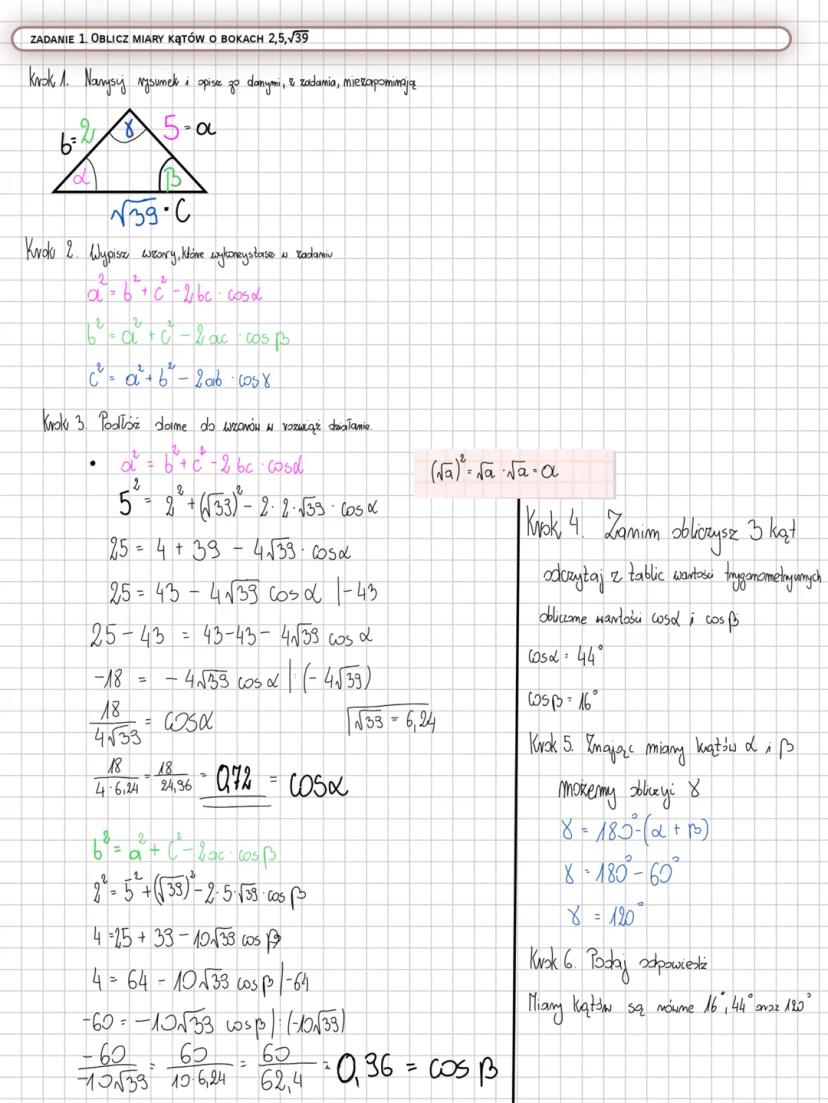 ZADANIE 1. OBLICZ MIARY KĄTÓW O BOKACH 2,5,√39
Krok 1. Narysuj rysunek i opisz go danymi, z zadania, niezapominając
b=2 γ 5=a
α β
√39 = C
Krok 2. Wypisz wzory, które wykorzystasz w zadaniu
a² = b² + c² - 2bc · cosα
b² = a² + c² - 2ac · cosβ
c² = a² + b² - 2ab · cosγ
Krok 3. Podłóż dane do wzorów u rozwiąż działanie.
• a² = b² + c² - 2bc · cosα
(√a)² = √a · √a = a
5² = 2² + (√39)² - 2·2·√39 · cosα
25 = 4 + 39 - 4√39 · cosα
25 = 43 - 4√39 cosα |-43
25-43 = 43-43 - 4√39 cosα
-18 = -4√39 cosα |:(-4√39)
18/4√39 = cosα
√39 = 6,24
18/4·6,24 = 18/24,96 = 0,72 = cosα
b² = a² + c² - 2ac · cosβ
2² = 5² + (√39)² - 2·5·√39 · cosβ
4 = 25 + 39 - 10√39 cosβ
4 = 64 - 10√39 cosβ |-64
-60 = -10√39 cosβ |:(-10√39)
-60/-10√39 = 60/10·6,24 = 60/62,4 = 0,96 = cosβ
Krok 4. Zanim obliczysz 3 kąt
odczytaj z tablic wartości trygonometrycznych
obliczone wartości cosα i cosβ
cosα = 44°
cosβ = 16°
Krok 5. Znając miary kątów α i β
możemy obliczyć γ
γ = 180° - (α + β)
γ = 180° - 60°
γ = 120°
Krok 6. Podaj odpowiedź
Miary kątów są równe 16°, 44° oraz 120°